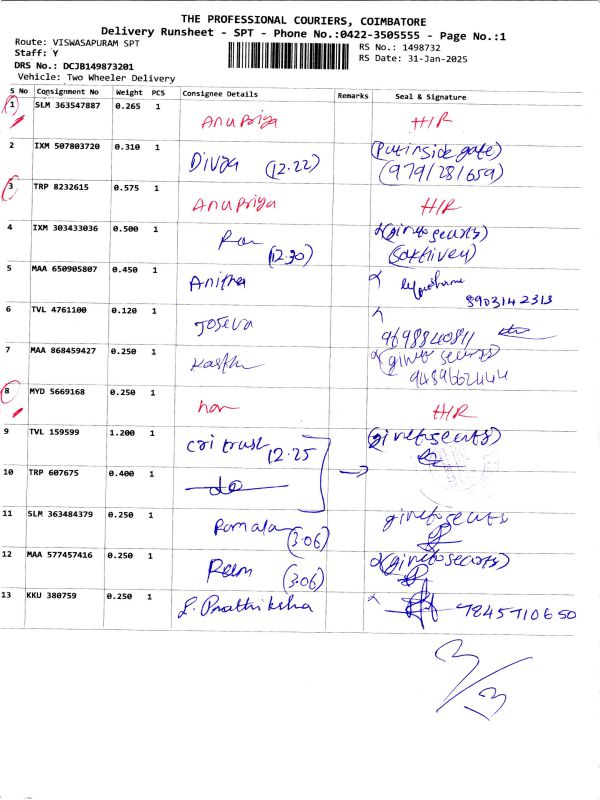 THE PROFESSIONAL COURIERS, COIMBATORE
Delivery Runsheet - SPT - Phone No.:0422-3505555 - Page No.:1
Route: VISWASAPURAM SPT
RS No.: 1498732
Staff: Y
RS Date: 31-Jan-2025
DRS No.: DCJB149873201
Vehicle: Two Wheeler Delivery
S No Consignment No Weight PCS Consignee Details Remarks Seal & Signature
1 SLM 363547887 0.265 1 Anupriya H/R
2 IXM 507803720 0.310 1 Divya (12.22) (Put inside gate)
(9791281659)
3 TRP 8232615 0.575 1 Anupriya H/R
4 IXM 303433036 0.500 1 (12.30) (give to security)
(Sakthivel)
5 MAA 650905807 0.450 1 Anitha
8903142313
6 TVL 4761100 0.120 1 Joseva
9698840811
7 MAA 868459427 0.250 1 (give to security)
9489662444
8 MYD 5669168 0.250 1 H/R
9 TVL 159599 1.200 1 Cri trust 12.25 (give to security)
10 TRP 607675 0.400 1 do
11 SLM 363484379 0.250 1 Ramala (3.06) give to security
12 MAA 577457416 0.250 1 (3.06) (give to security)
13 KKU 380759 0.250 1 L. Prathiksha 9845710650